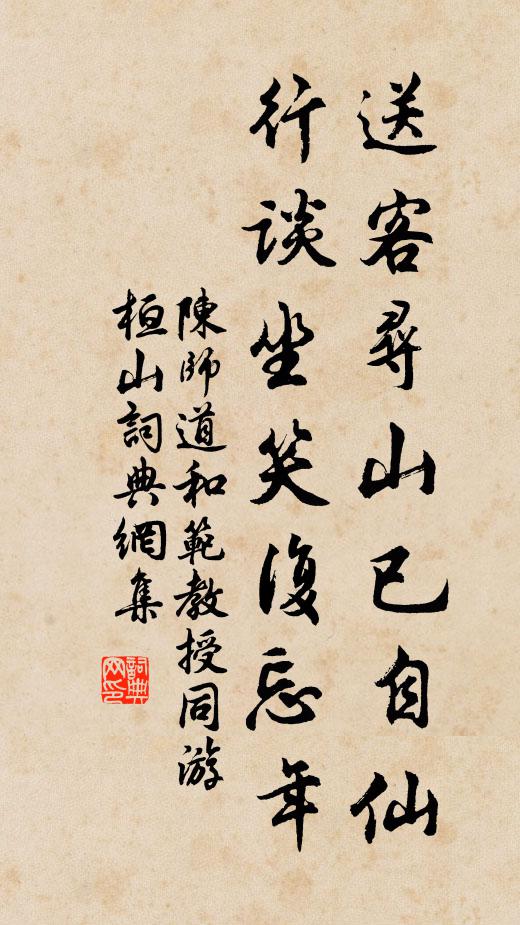 送客尋山已自仙
行談坐笑復忘年
陳師道和範教授同游
桓山詞典網集
詞典
网印